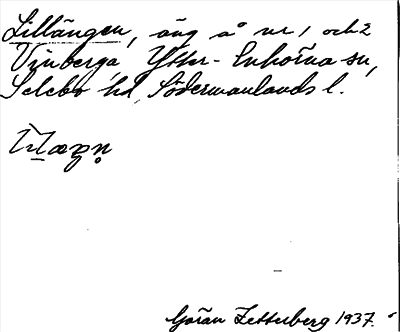 Lillängen, äng å nr 1 och 2
Vinberga Ytter-Enhörna sn,
Selebo hd, Södermanlands l.
Göran Zetterberg 1937.